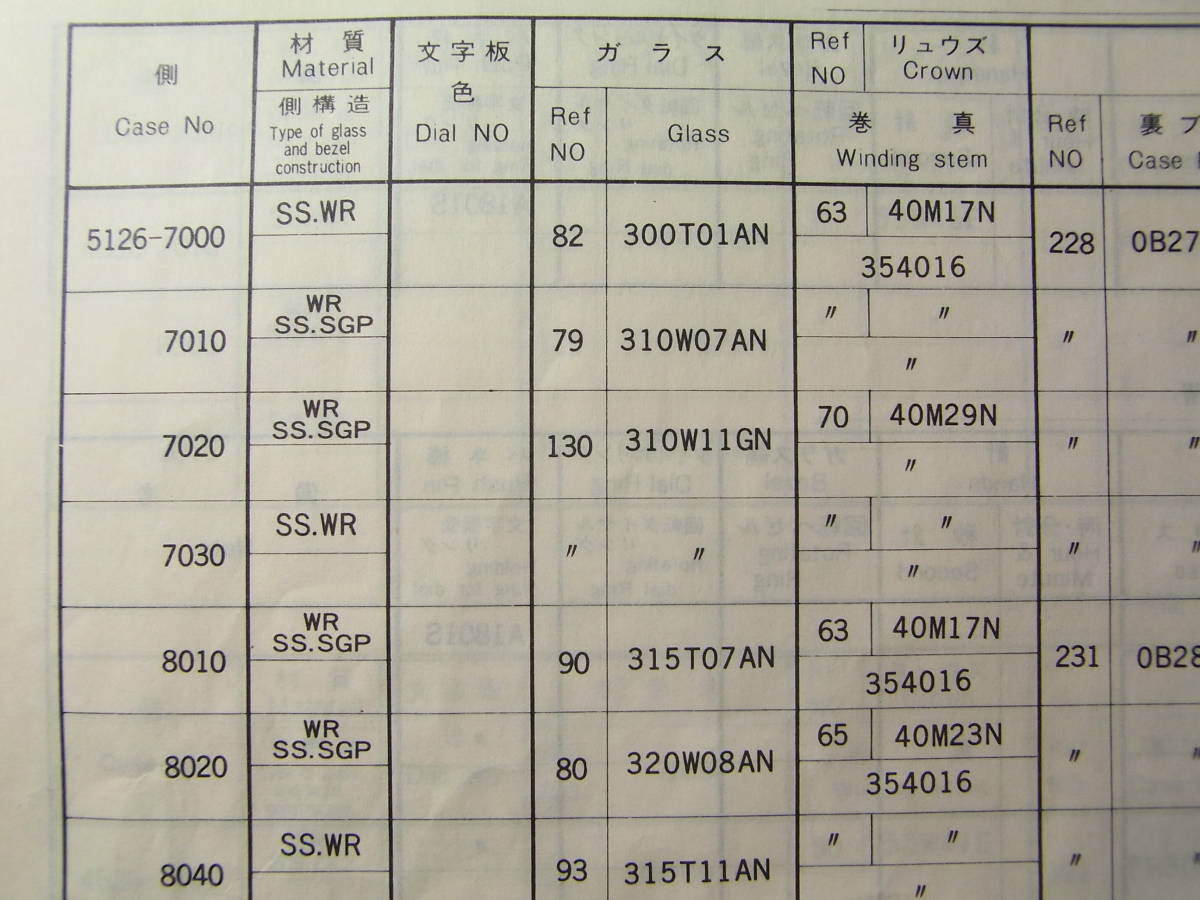 側
Case No
材質
Material
側構造
Type of glass
and bezel
construction
文字板
色
Dial NO
ガラス
Ref
NO
Glass
Ref
NO
リュウズ
Crown
巻真
Winding stem
Ref
NO
裏ブ
Case
5126-7000
SS.WR
82
300T01AN
63
40M17N
354016
228
0B27
7010
WR
SS.SGP
79
310W07AN
〃
〃
〃
〃
〃
7020
WR
SS.SGP
130
310W11GN
70
40M29N
〃
〃
〃
7030
SS.WR
〃
〃
〃
〃
〃
〃
〃
8010
WR
SS.SGP
90
315T07AN
63
40M17N
354016
231
0B28
8020
WR
SS.SGP
80
320W08AN
65
40M23N
354016
〃
〃
8040
SS.WR
93
315T11AN
〃
〃
〃
〃
〃